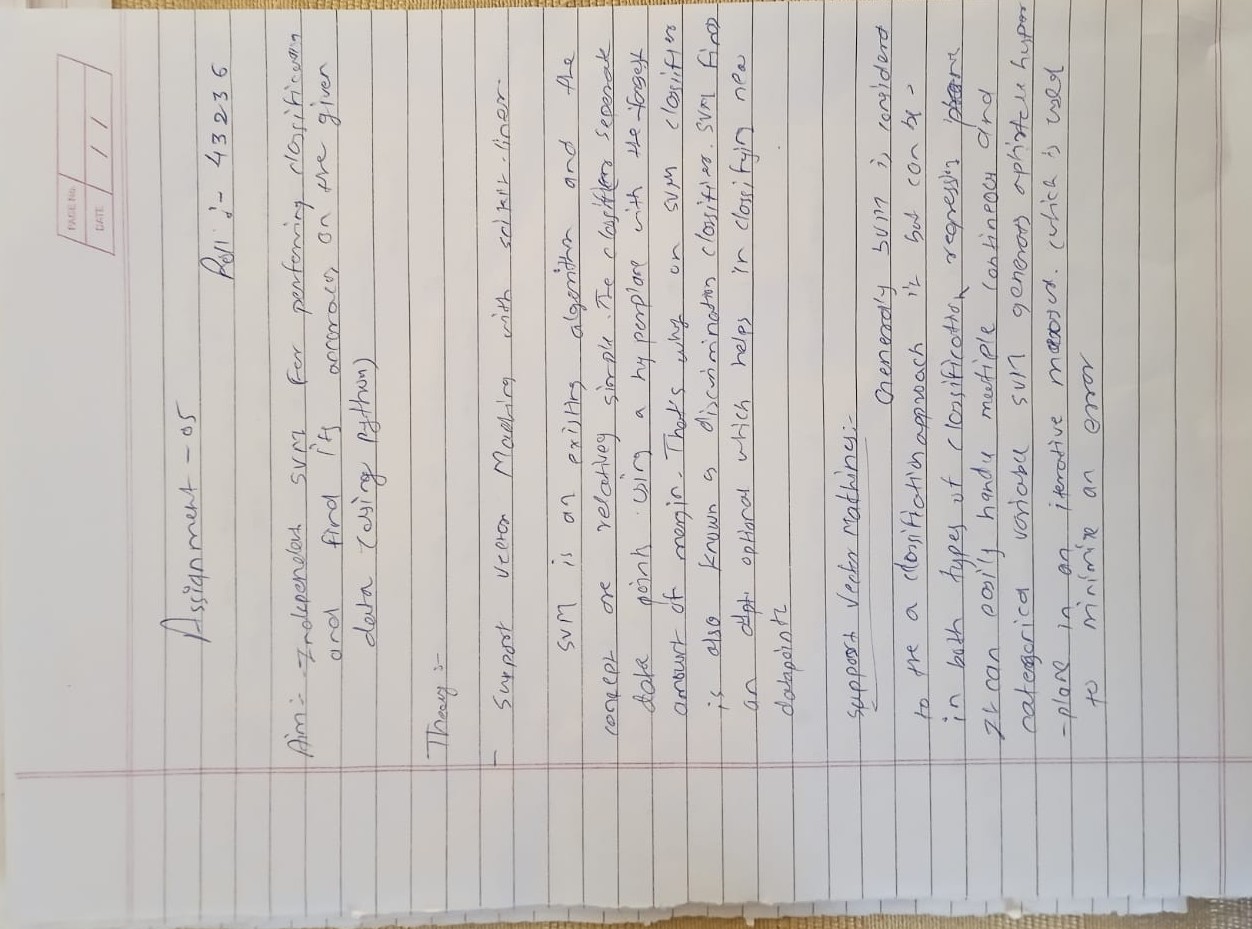 PAGE No.
DATE / /
Assignment - 05
Roll :- 43236
Aim :- Independent SVM for performing classification
and find its accuracy on the given
data (using python)
Theory :-
- Support Vector Machine with scikit-liner
SVM is an existing algorithm and the
concept are relativey simple. The classifiers seperate
data point using a hyperplane with the largest
amount of margin. That's why an SVM classifier
is also known as discrimination classifier. SVM finds
an optional which helps in classifying new
datapoints
Support Vector Mathines:-
Generally SVM is considerd
to the a classifiation approach it but can be
in both types of classification regression
It can easily handle multiple contineous and
categorical variable SVM generats hyper
-plane in an iterative which is used
to minimize an error